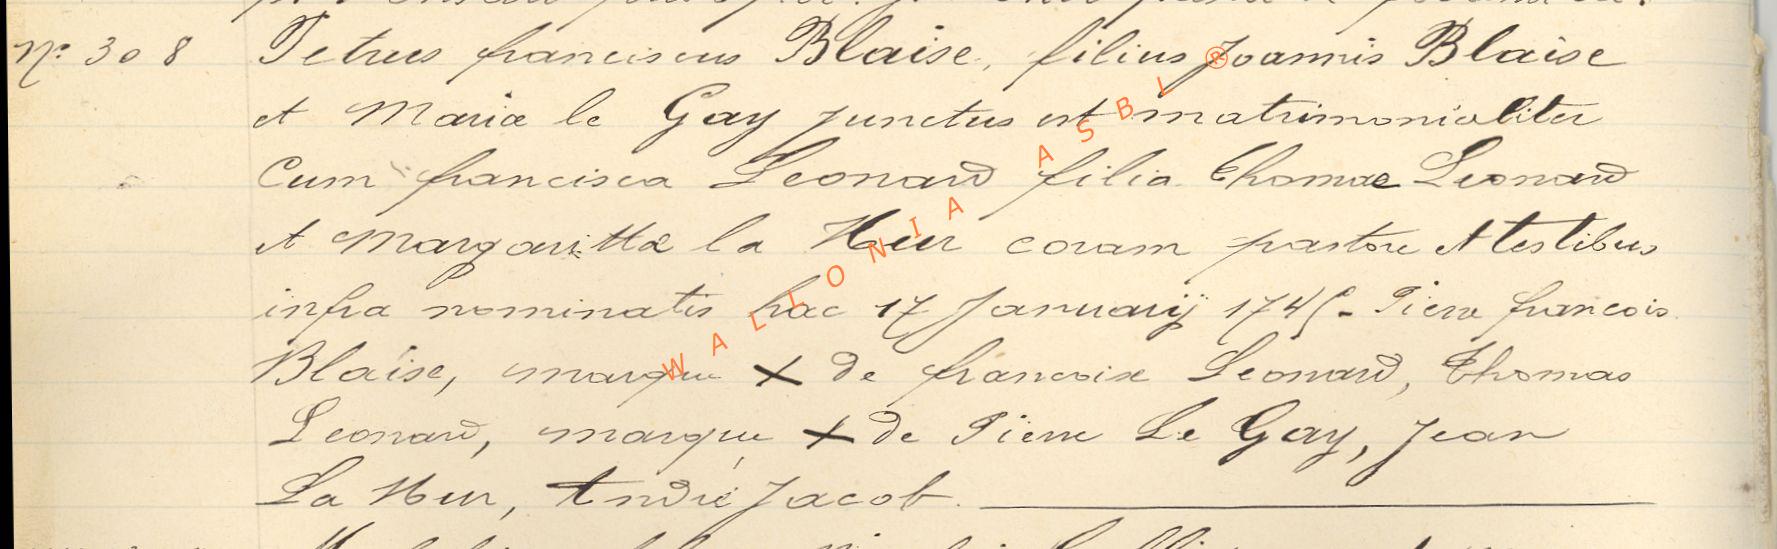 Nº 308 Petrus franciscus Blaise, filius Joannis Blaise
et Mariæ le Gay junctus est matrimonialiter
Cum francisca Leonard filia Thomae Leonard
et Margarittæ la Heur coram pastore et testibus
infra nominatis hac 17 Januarij 1745 - Pierre francois
Blaise, marque X de francoise Leonard, Thomas
Leonard, marque X de Pierre Le Gay, Jean
La Heur, André Jacob.
WALLONIA ASBL ®